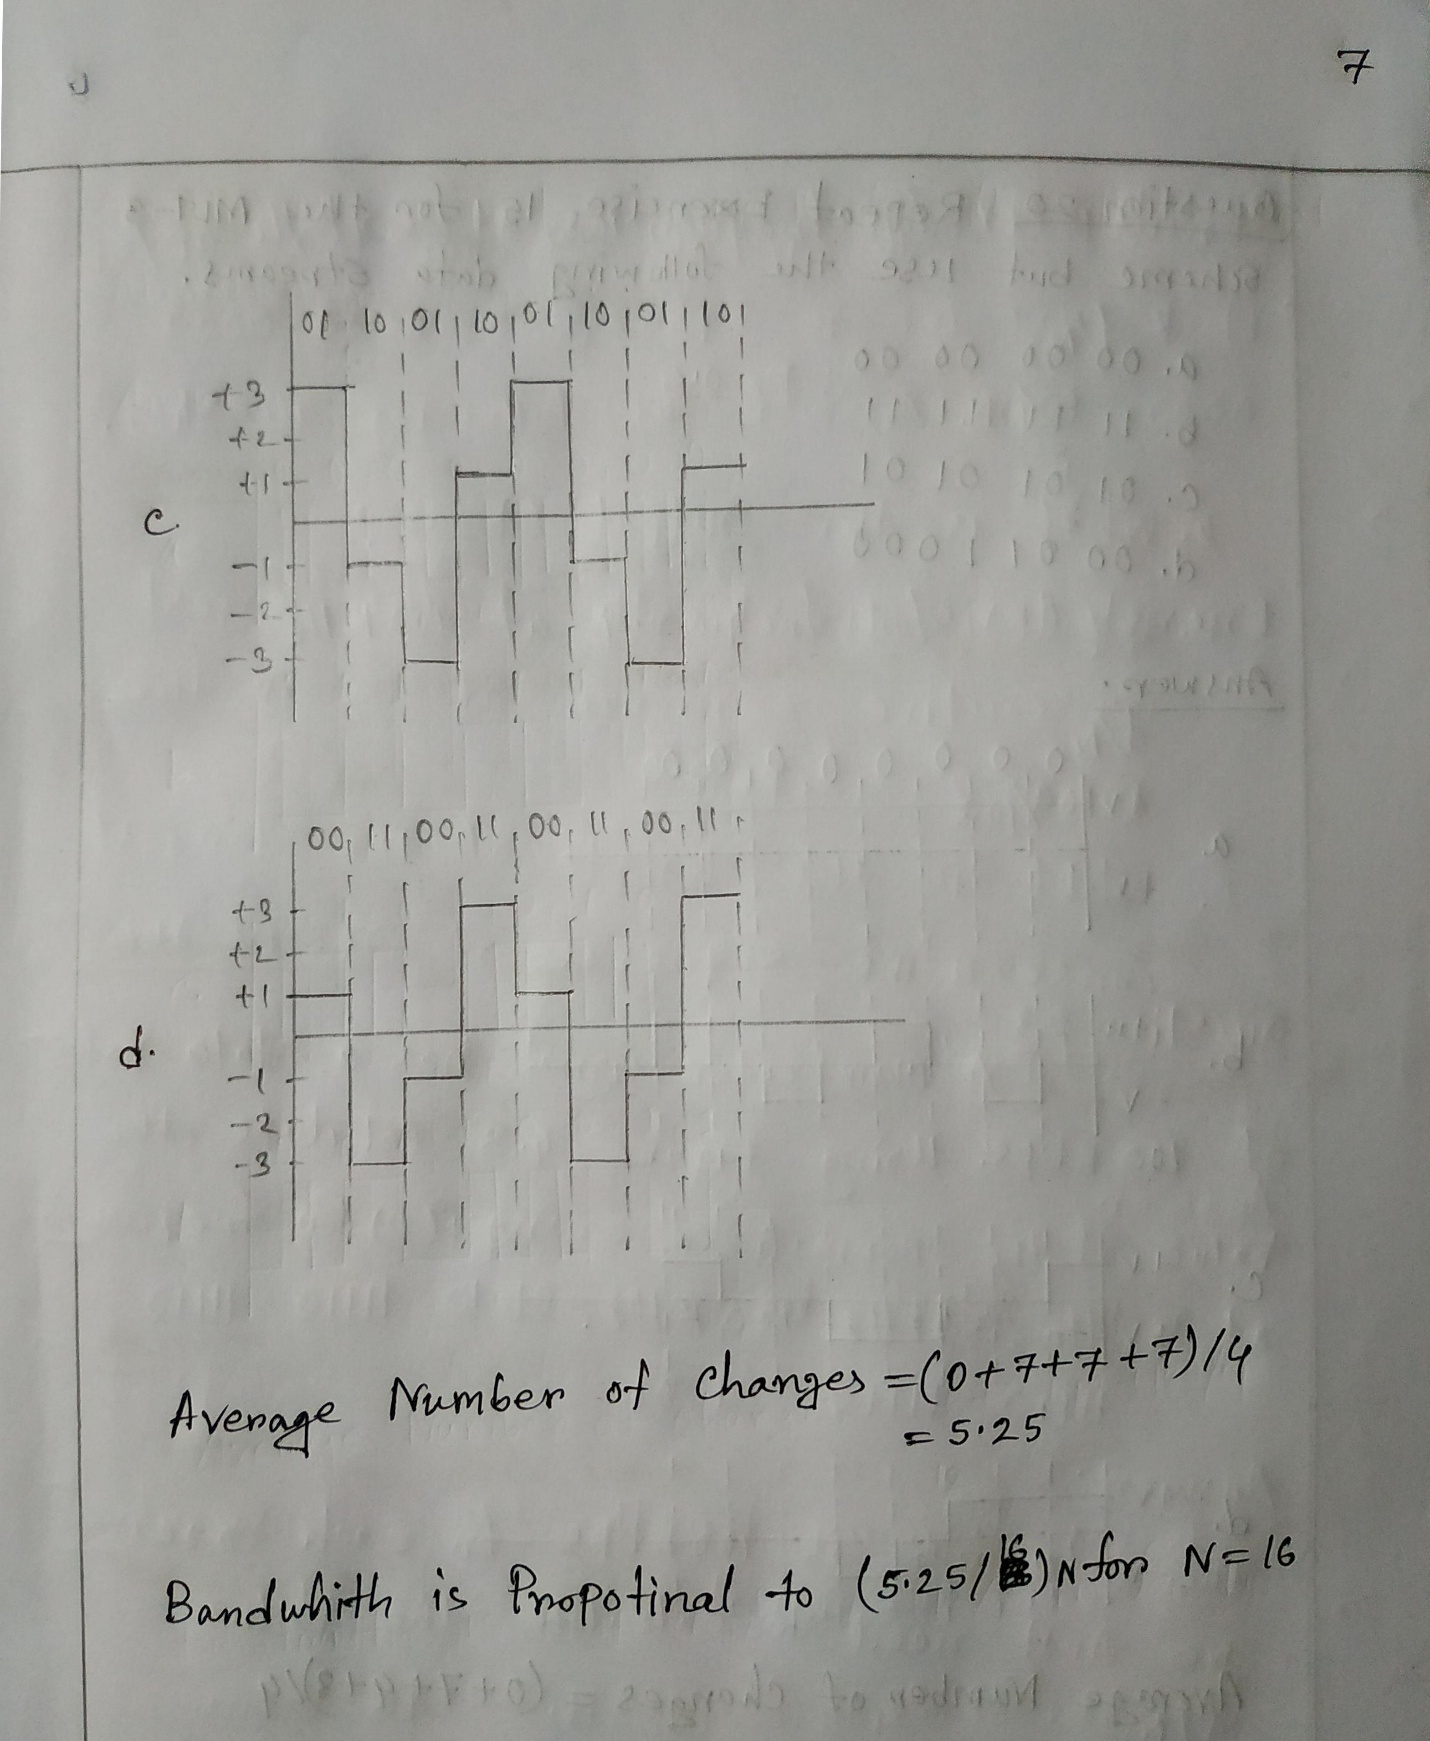 7
01 10 01 10 01 10 01 10
+3
+2
+1
c.
-1
-2
-3
00 11 00 11 00 11 00 11
+3
+2
+1
d.
-1
-2
-3
Average Number of Changes = (0+7+7+7)/4
= 5.25
Bandwhith is Propotinal to (5.25/16)N for N=16